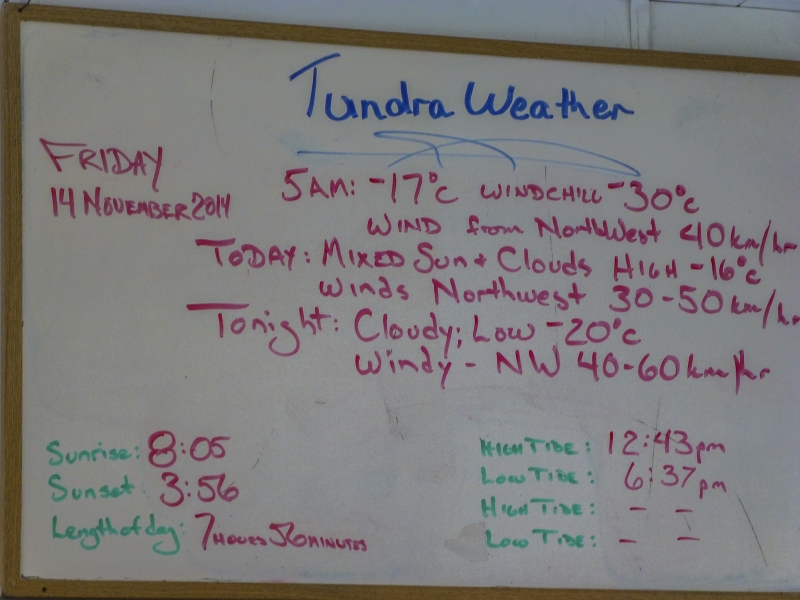 Tundra Weather
FRIDAY
14 NOVEMBER 2014
5AM: -17°C WINDCHILL -30°C
WIND from NorthWest 40km/hr
TODAY: MIXED Sun + Clouds HIGH -16°C
Winds Northwest 30-50km/hr
Tonight: Cloudy; Low -20°C
Windy - NW 40-60km/hr
Sunrise: 8:05
Sunset 3:56
Length of day: 7 HOURS 56 MINUTES
HIGH TIDE: 12:43pm
LOW TIDE: 6:37pm
HIGH TIDE: - -
LOW TIDE: - -